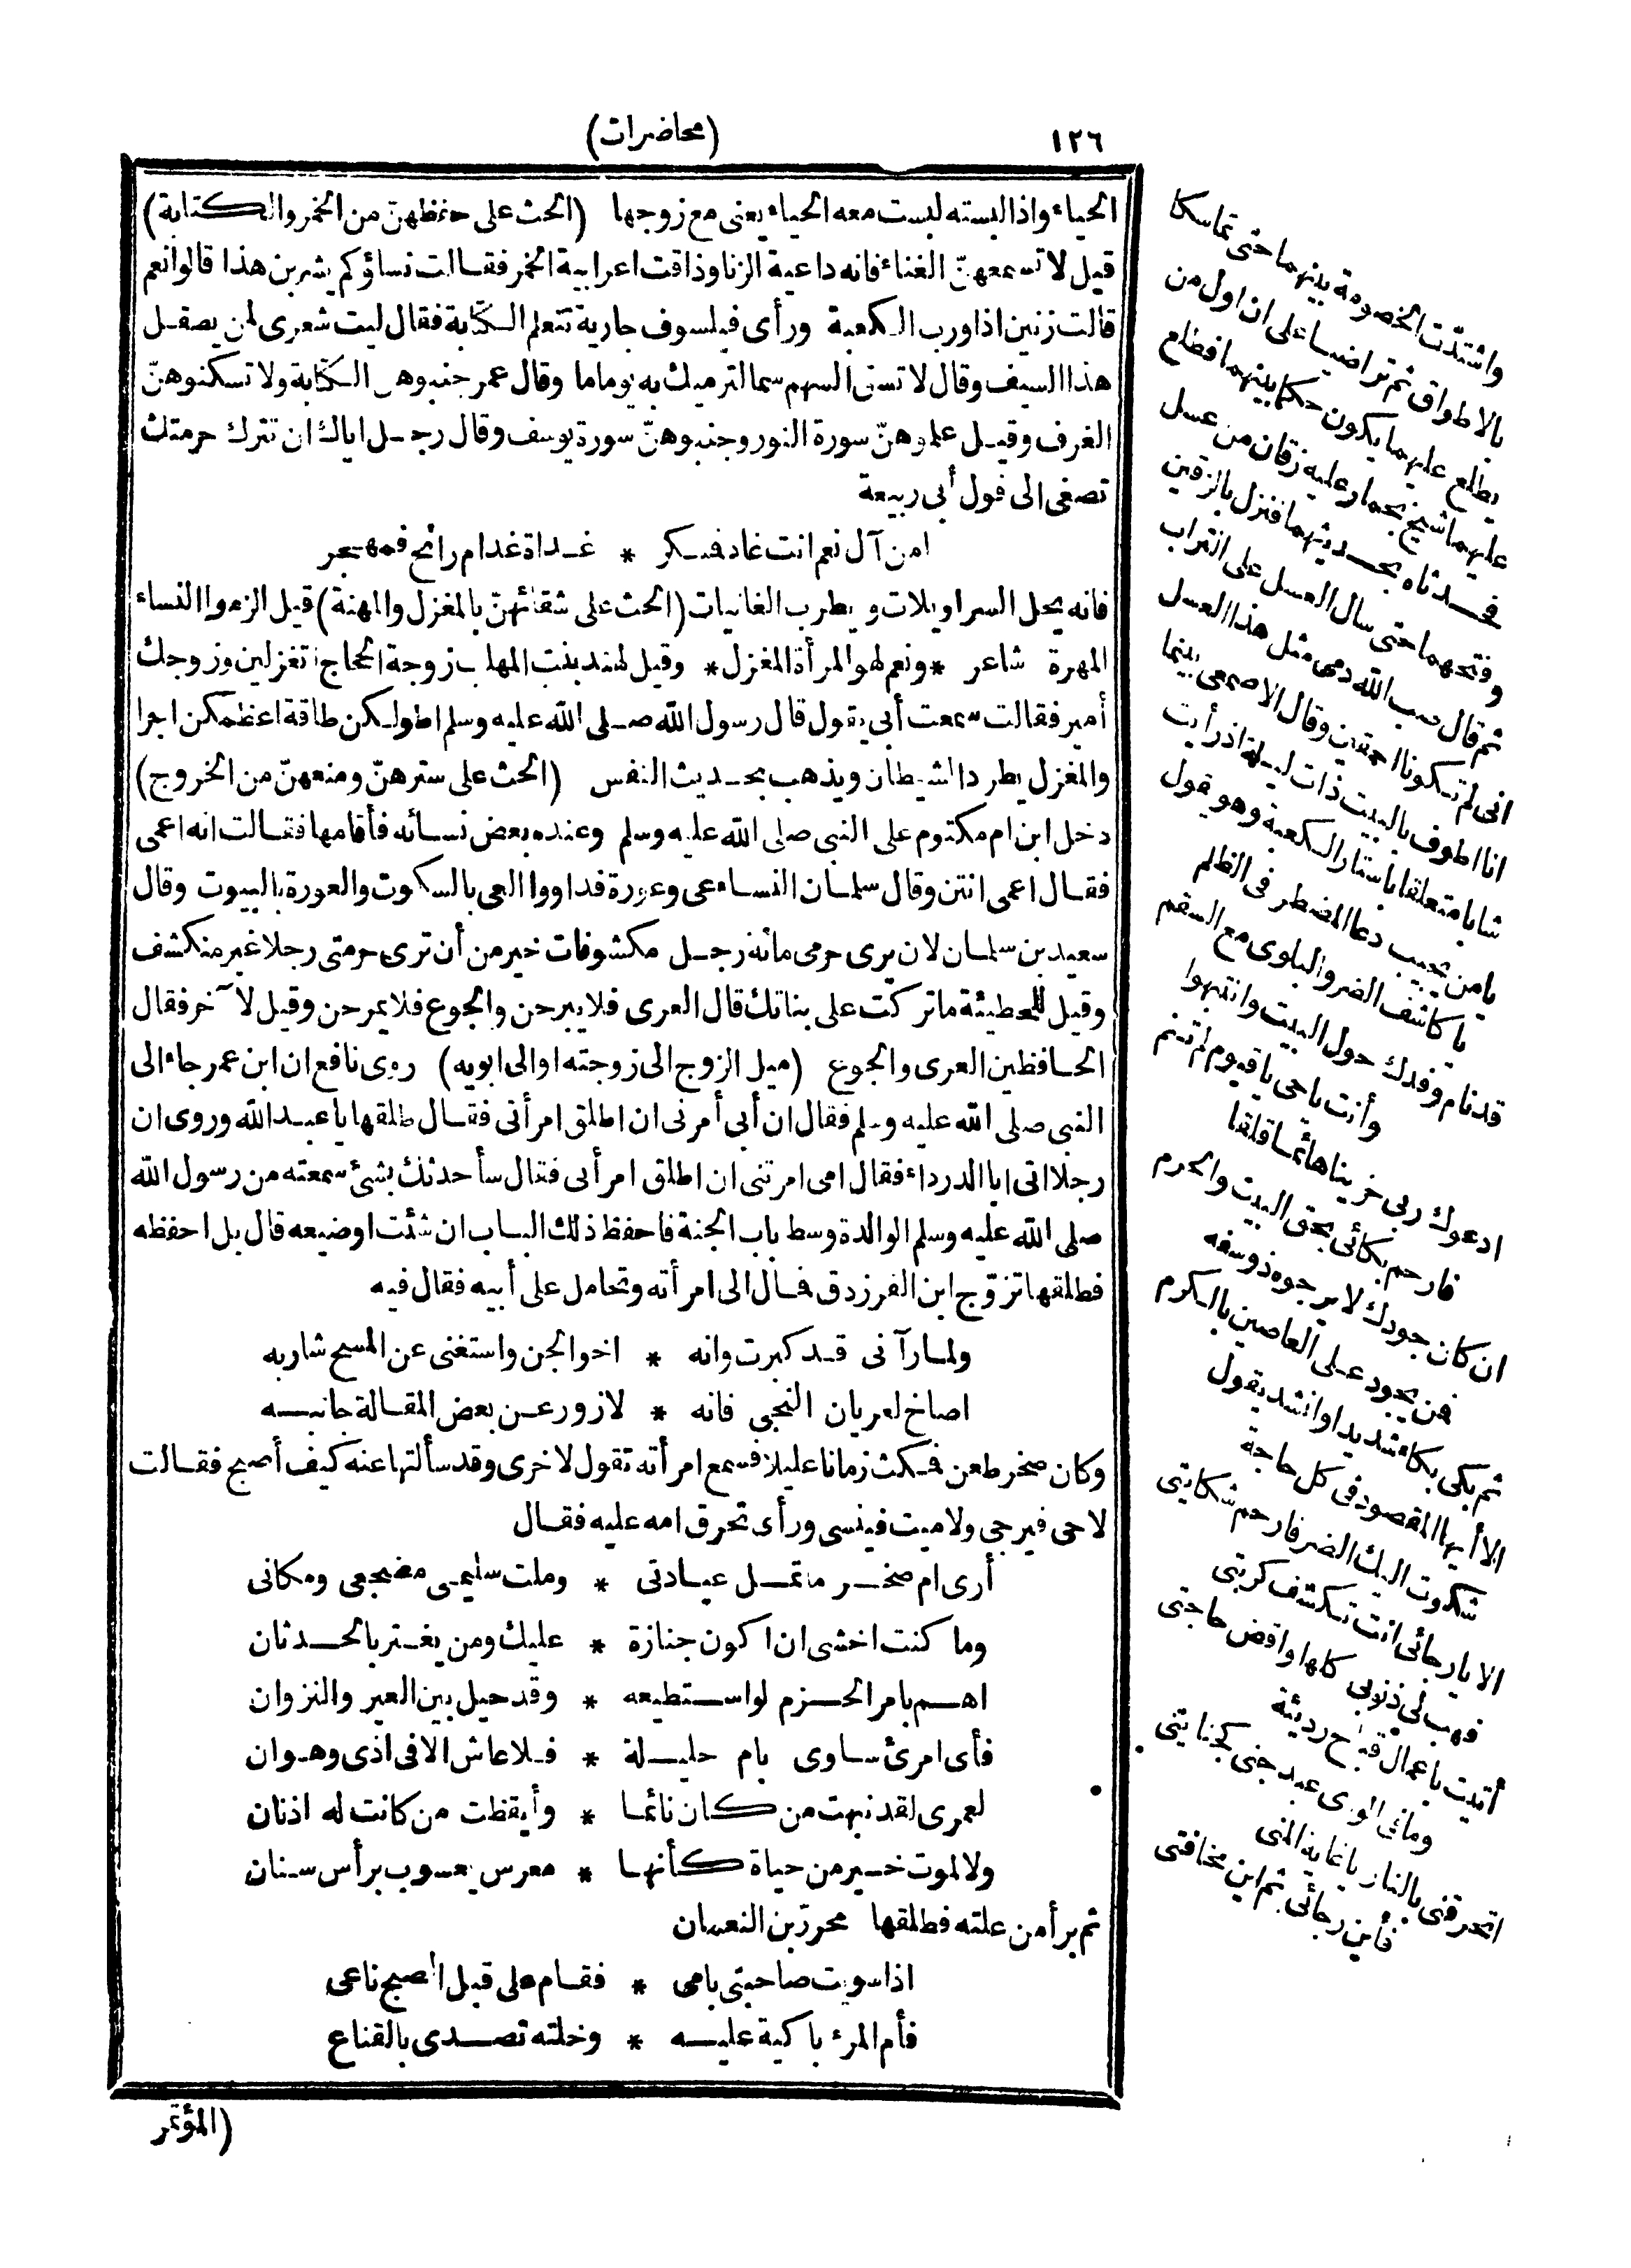 ١٢٦
(محاضرات)
الحياء واذا لبسته لبست معه الحياء يعنى مع زوجها (الحث على حفظهنّ من الخمر والكتابة)
قيل لا تسمعهنّ الغناء فانه داعية الزنا وذاقت اعرابية الخمر فقالت نساؤكم يشربن هذا قالوا نعم
قالت زنين اذا ورب الكعبة ورأى فيلسوف جارية تتعلم الكتابة فقال ليت شعرى لمن يصقل
هذا السيف وقال لا تسق السهم سما لترميك به يوما ما وقال عمر جنبوهن الكتابة ولا تسكنوهنّ
الغرف وقيل علموهنّ سورة النور وجنبوهنّ سورة يوسف وقال رجل اياك ان تترك حرمتك
تصغى الى قول أبى ربيعة
امن آل نعم انت غاد فبكر * غداة غد ام رائح فمهجر
فانه يحل السراويلات ويطرب الغانيات (الحث على شقائهنّ بالمغزل والمهنة) قيل الزموا النساء
المهرة شاعر *ونعم لهو المرأة المغزل* وقيل لهند بنت المهلب زوجة الحجاج أتغزلين وزوجك
أمير فقالت سمعت أبى يقول قال رسول الله صلى الله عليه وسلم اطولكن طاقة اعظمكن اجرا
والمغزل يطرد الشيطان ويذهب بحديث النفس (الحث على سترهنّ ومنعهنّ من الخروج)
دخل ابن ام مكتوم على النبى صلى الله عليه وسلم وعنده بعض نسائه فأقامها فقالت انه اعمى
فقال اعمى انتن وقال سلمان النساء عى وعورة فداووا العى بالسكوت والعورة بالبيوت وقال
سعيد بن سلمان لان يرى حرمى مائة رجل مكشوفات خير من أن ترى حرمتى رجلا غير منكشف
وقيل للحطيئة ما تركت على بناتك قال العرى فلا يبرحن والجوع فلا يمرحن وقيل لآخر فقال
الحافظين العرى والجوع (ميل الزوج الى زوجته او الى ابويه) روى نافع ان ابن عمر جاء الى
النبى صلى الله عليه وسلم فقال ان أبى أمرنى ان اطلق امرأتى فقال طلقها يا عبد الله وروى ان
رجلا اتى ابا الدرداء فقال امى امرتنى ان اطلق امرأتى فقال سأحدثك بشئ سمعته من رسول الله
صلى الله عليه وسلم الوالدة وسط باب الجنة فاحفظ ذلك الباب ان شئت او ضيعه قال بل احفظه
فطلقها تزوّج ابن الفرزدق فمال الى امرأته وتحامل على أبيه فقال فيه
ولما رآنى قد كبرت وانه * اخو الجن واستغنى عن المسح شاربه
اصاخ لعريان النجى فانه * لازور عن بعض المقالة جانبه
وكان صخر طعن فمكث زمانا عليلا فسمع امرأته تقول لاخرى وقد سألتها عنه كيف أصبح فقالت
لا حى فيرجى ولا ميت فينسى ورأى تحرق امه عليه فقال
أرى ام صخر ما تمل عيادتى * وملت سليمى مضجعى ومكانى
وما كنت اخشى ان اكون جنازة * عليك ومن يغتر بالحدثان
اهم بامر الحزم لو استطيعه * وقد حيل بين العير والنزوان
فأى امرئ ساوى بام حليلة * فلا عاش الا فى اذى وهوان
لعمرى لقد نبهت من كان نائما * وأيقظت من كانت له اذنان
ولا لموت خير من حياة كأنها * معرس يعسوب برأس سنان
ثم برأ من علته فطلقها محرز بن النعمان
اذا سويت صاحبتى بامى * فقام على قبل الصبح ناعى
فأم المرء باكية عليه * وخلته تصدى بالقناع
(المؤتمر
واشتدّت الخصومة بينهما حتى تماسكا
بالاطواق ثم تراضيا على ان اول من
يطلع عليهما يكون حكما بينهما فطلع
عليهما شيخ بحمار عليه زقان من عسل
فحدثاه بحديثهما فنزل بالزقين
وفتحهما حتى سال العسل على التراب
ثم قال صب الله دمى مثل هذا العسل
انى لم تكونا احمقين وقال الاصمعى بينما
انا اطوف بالبيت ذات ليلة اذ رأيت
شابا متعلقا باستار الكعبة وهو يقول
يا من يجيب دعا المضطر فى الظلم
يا كاشف الضر والبلوى مع السقم
قد نام وفدك حول البيت وانتبهوا
وأنت يا حى يا قيوم لم تنم
ادعوك ربى حزينا هائما قلقا
فارحم بكائى بحق البيت والحرم
ان كان جودك لا يرجوه ذو سفه
فمن يجود على العاصين بالكرم
ثم بكى بكاء شديدا وانشد يقول
الا أيها المقصود فى كل حاجة
شكوت اليك الضر فارحم شكايتى
الا يا رجائى انت تكشف كربتى
فهب لى ذنوبى كلها واقض حاجتى
أتيت باعمال قباح رديئة
وما فى الورى عبد جنى كجنايتى
اتحرقنى بالنار يا غاية المنى
فأين رجائى ثم اين مخافتى